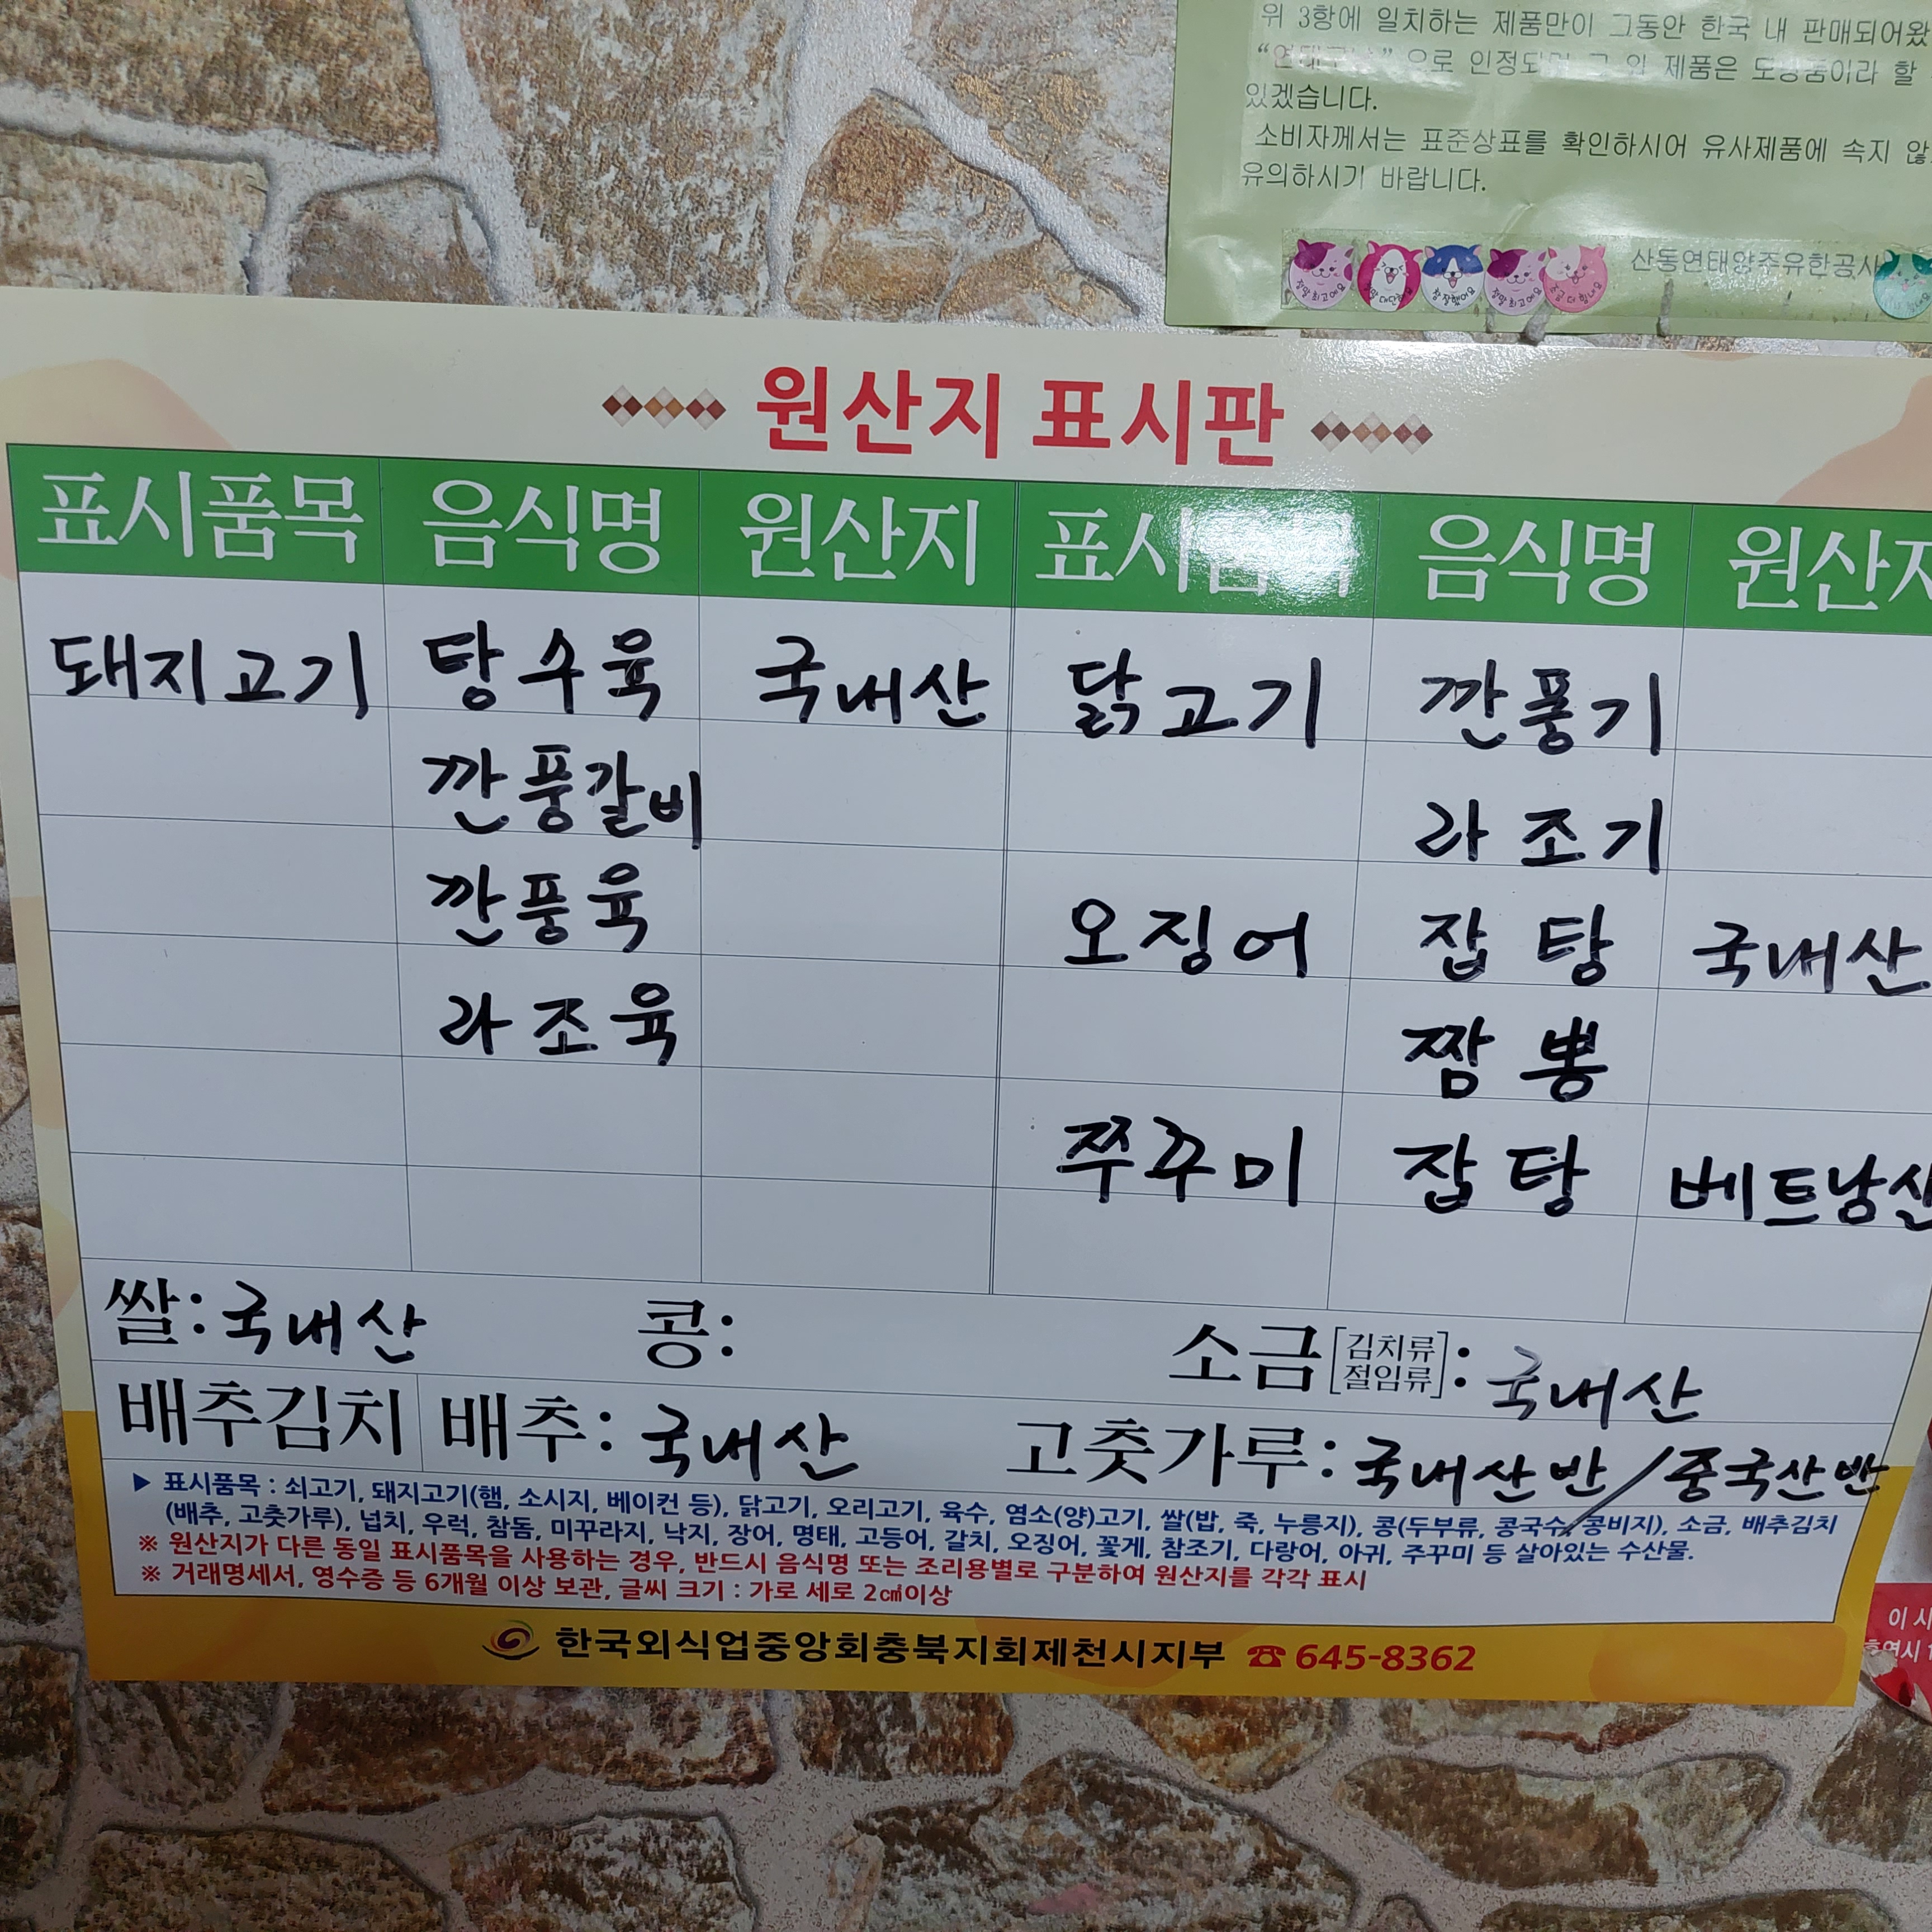 위 3항에 일치하는 제품만이 그동안 한국 내 판매되어왔
으로 인정되 그 외 제품은 모방품이라 할
있겠습니다.
소비자께서는 표준상표를 확인하시어 유사제품에 속지 않
유의하시기 바랍니다.
정말 최고예요 참 잘했어요 정말 최고예요 조금 더 힘내요
산동연태양주유한공사
원산지 표시판
표시품목 음식명 원산지 표시품목 음식명 원산지
돼지고기 탕수육 국내산 닭고기 깐풍기
깐풍갈비 라조기
깐풍육 오징어 잡탕 국내산
라조육 짬뽕
쭈꾸미 잡탕 베트남산
쌀: 국내산 콩: 소금[김치류 절임류]: 국내산
배추김치 배추: 국내산 고춧가루: 국내산반/중국산반
▶ 표시품목 : 쇠고기, 돼지고기(햄, 소시지, 베이컨 등), 닭고기, 오리고기, 육수, 염소(양)고기, 쌀(밥, 죽, 누룽지), 콩(두부류, 콩국수, 콩비지), 소금, 배추김치
(배추, 고춧가루), 넙치, 우럭, 참돔, 미꾸라지, 낙지, 장어, 명태, 고등어, 갈치, 오징어, 꽃게, 참조기, 다랑어, 아귀, 주꾸미 등 살아있는 수산물.
※ 원산지가 다른 동일 표시품목을 사용하는 경우, 반드시 음식명 또는 조리용별로 구분하여 원산지를 각각 표시
※ 거래명세서, 영수증 등 6개월 이상 보관, 글씨 크기 : 가로 세로 2㎝이상
한국외식업중앙회충북지회제천시지부 ☎ 645-8362
이 시